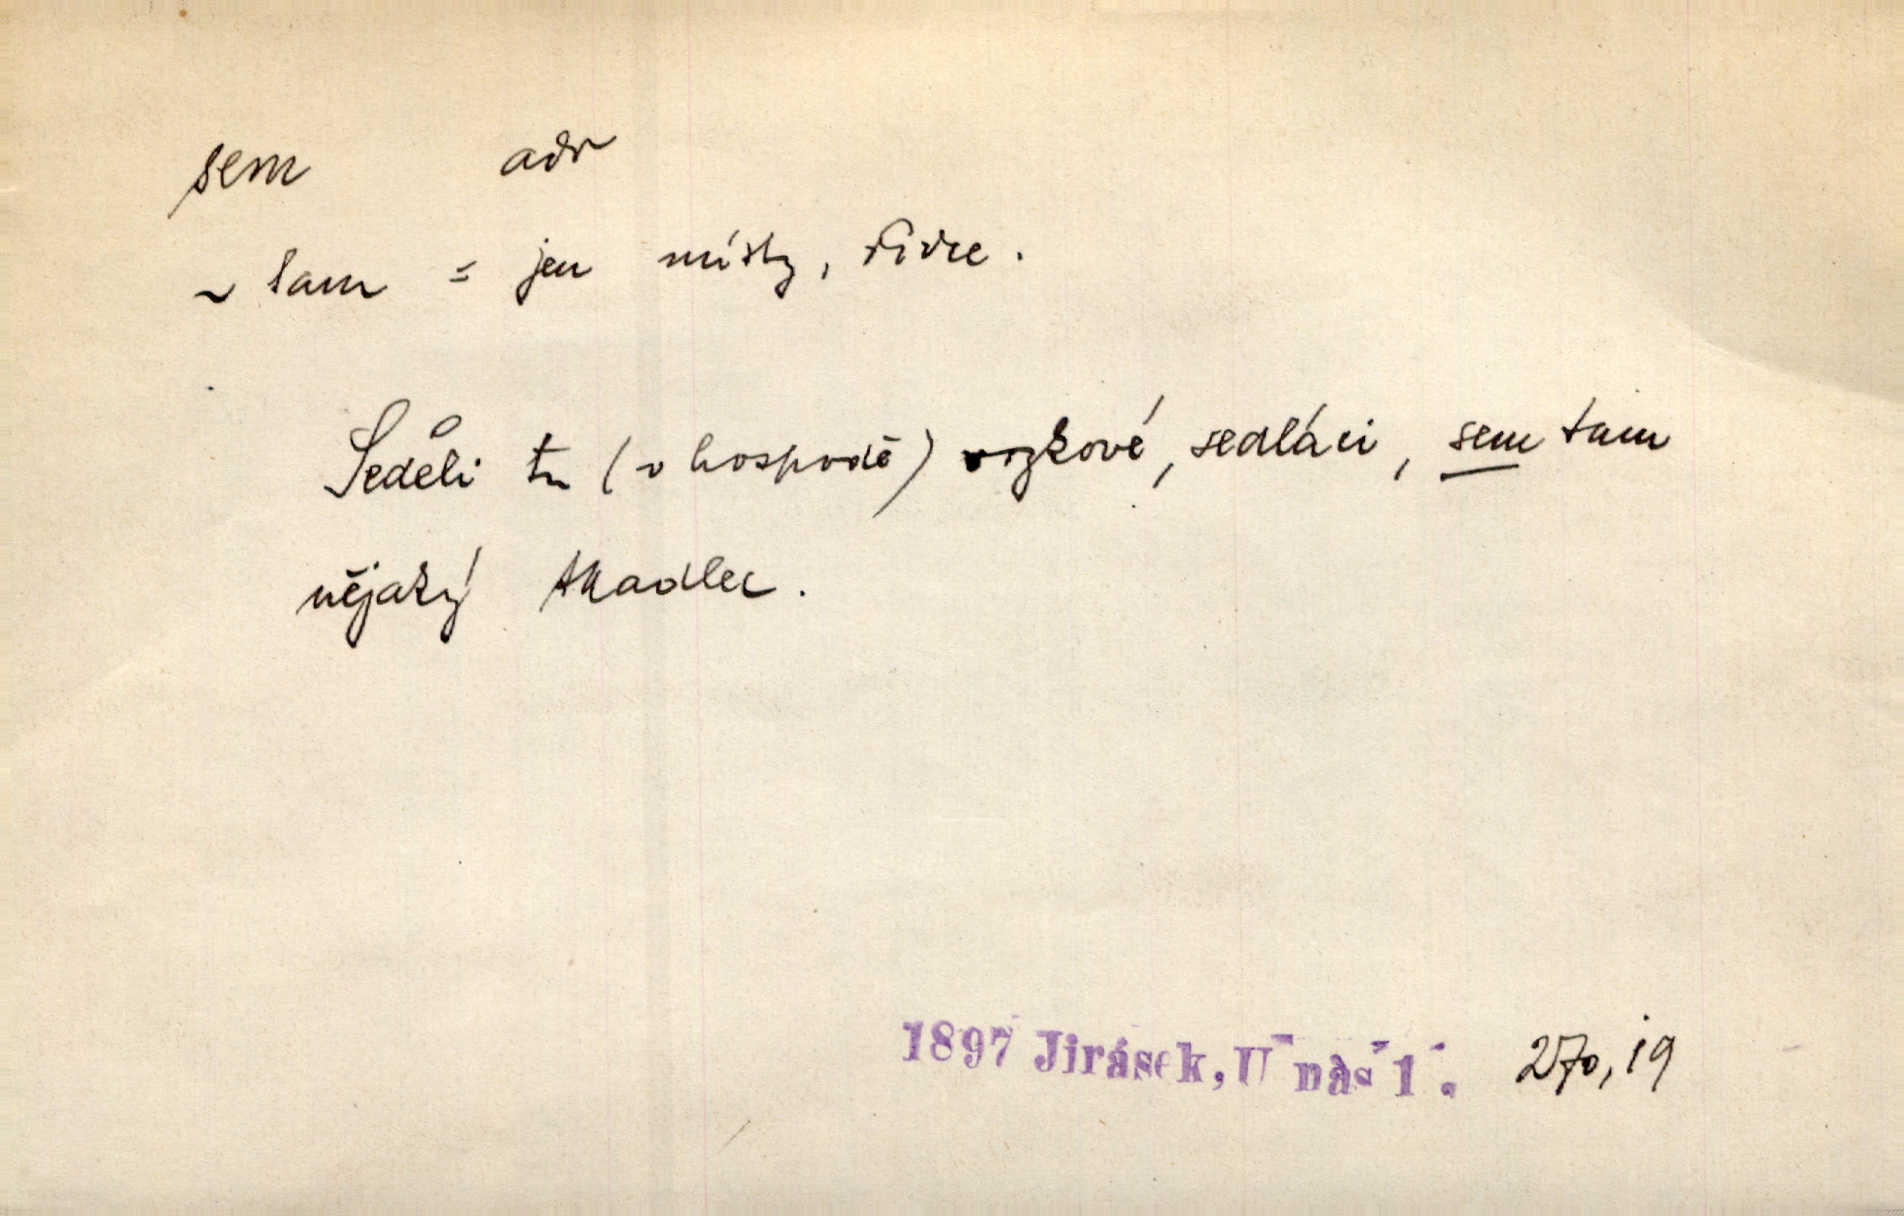 sem adv
~ tam = jen místy, řídce.
Seděli tu (v hospodě) vozkové, sedláci, sem tam
nějaký tkadlec.
1897 Jirásek, U nás 1. 270, 19